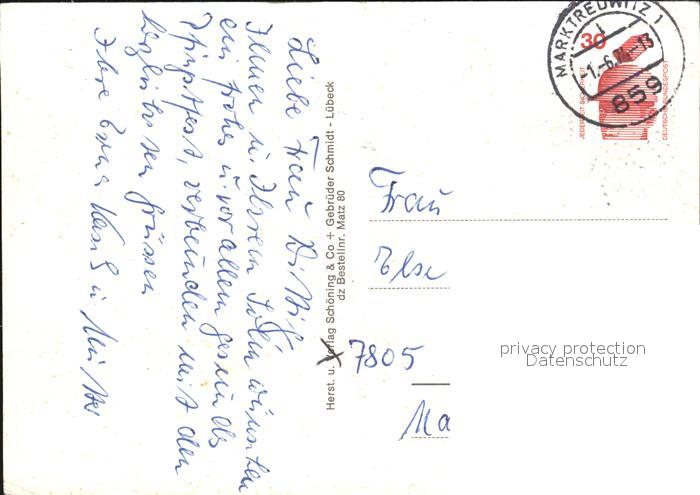 Liebe Frau
Ihnen u. Ihrem Sohn wünschen
ein frohes u. vor allem gesundes
Pfingstfest, verbunden mit den
herzlichsten Grüssen
Ihre Erna u. Mutter
Herst. u. Verlag Schöning & Co + Gebrüder Schmidt - Lübeck
dz Bestellnr. Matz 80
MARKTREDWITZ 1
-1.-6.74-13
859
30
JEDERZEIT SICHERHEIT
DEUTSCHE BUNDESPOST
Frau
Else
7805
Ma
privacy protection
Datenschutz